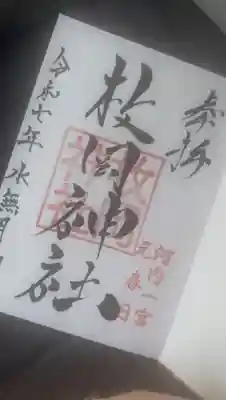 奉拝
河内一宮
元春日
枚岡神社
令和七年水無月